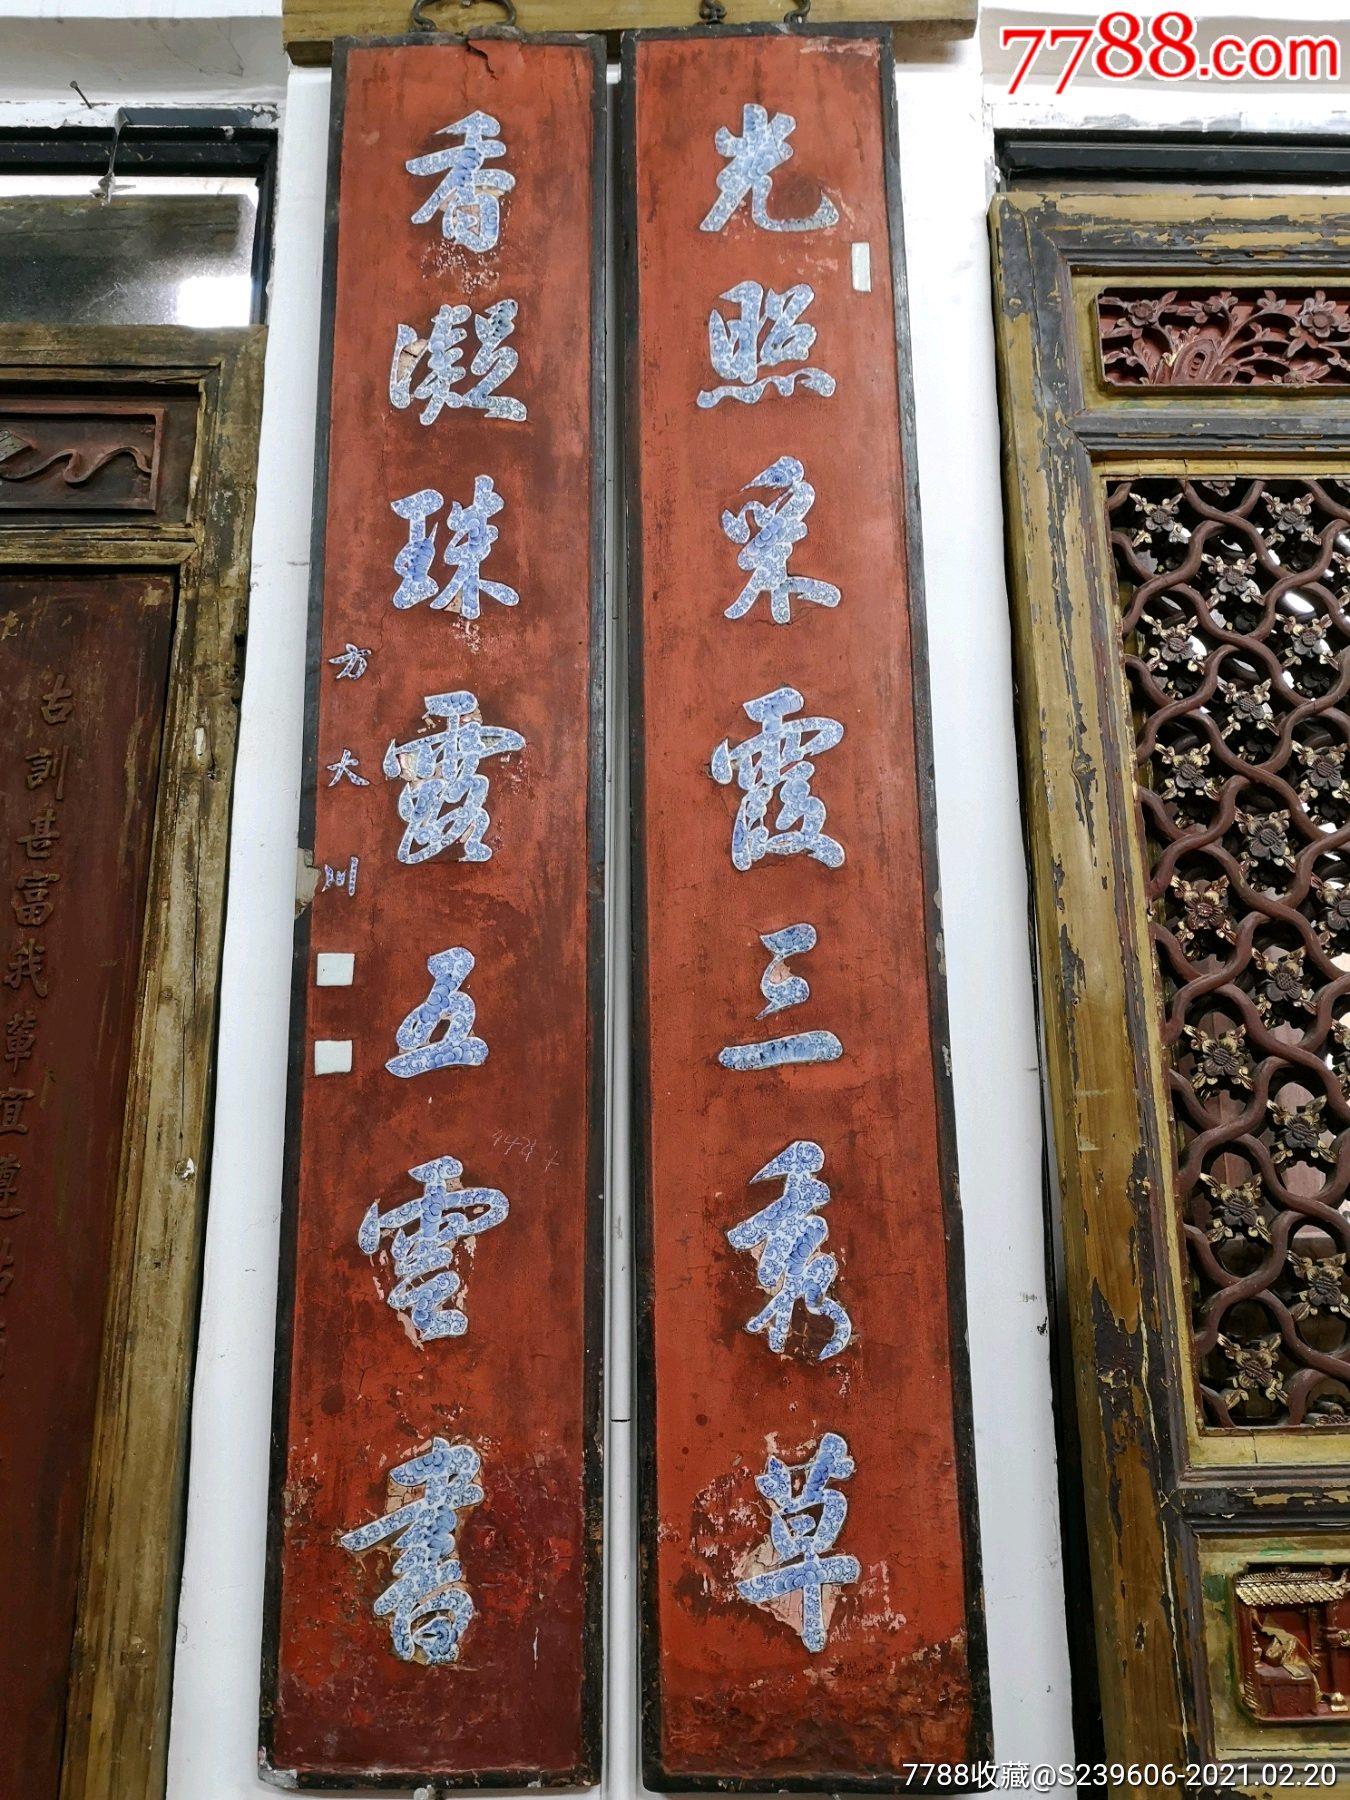 7788.com
光照采霞三秀草
香凝珠露五雲書
方大川
古訓甚富我輩宜遵
7788收藏@S239606-2021.02.20